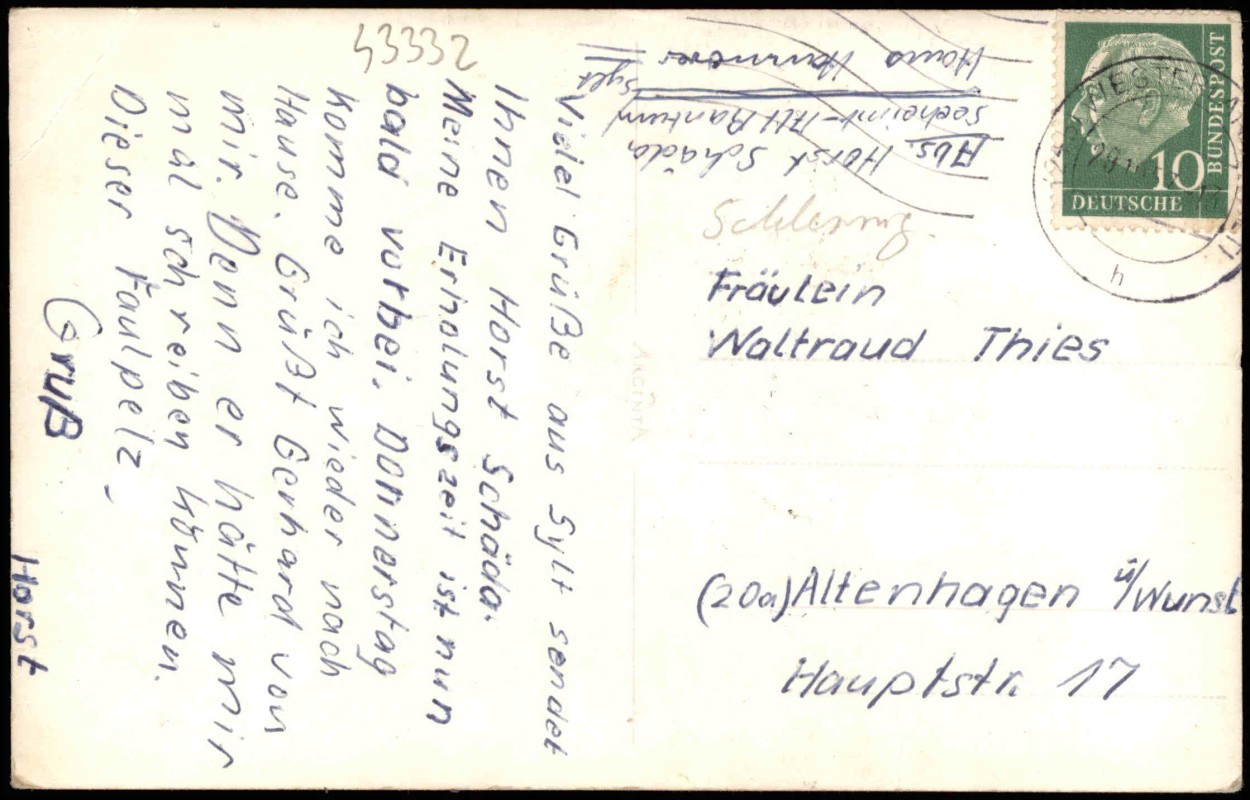 43332
Viele Grüße aus Sylt sendet
Ihnen Horst Schäda.
Meine Erholungszeit ist nun
bald vorbei. Donnerstag
komme ich wieder nach
Hause. Grüßt Gerhard von
mir. Denn er hätte mir
mal schreiben können.
Dieser Faulpelz.
Gruß
Horst
Abs. Horst Schäda
Seeheim - Rantum
Sylt
Haus Hannover
Schleswig
Fräulein
Waltraud Thies
(20a) Altenhagen ü/Wunst
Hauptstr. 17
ARGENTA
10
DEUTSCHE
BUNDESPOST
h